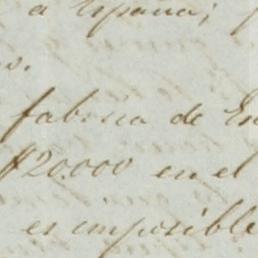 a España;
fabrica de
$20.000 en el
es imposible